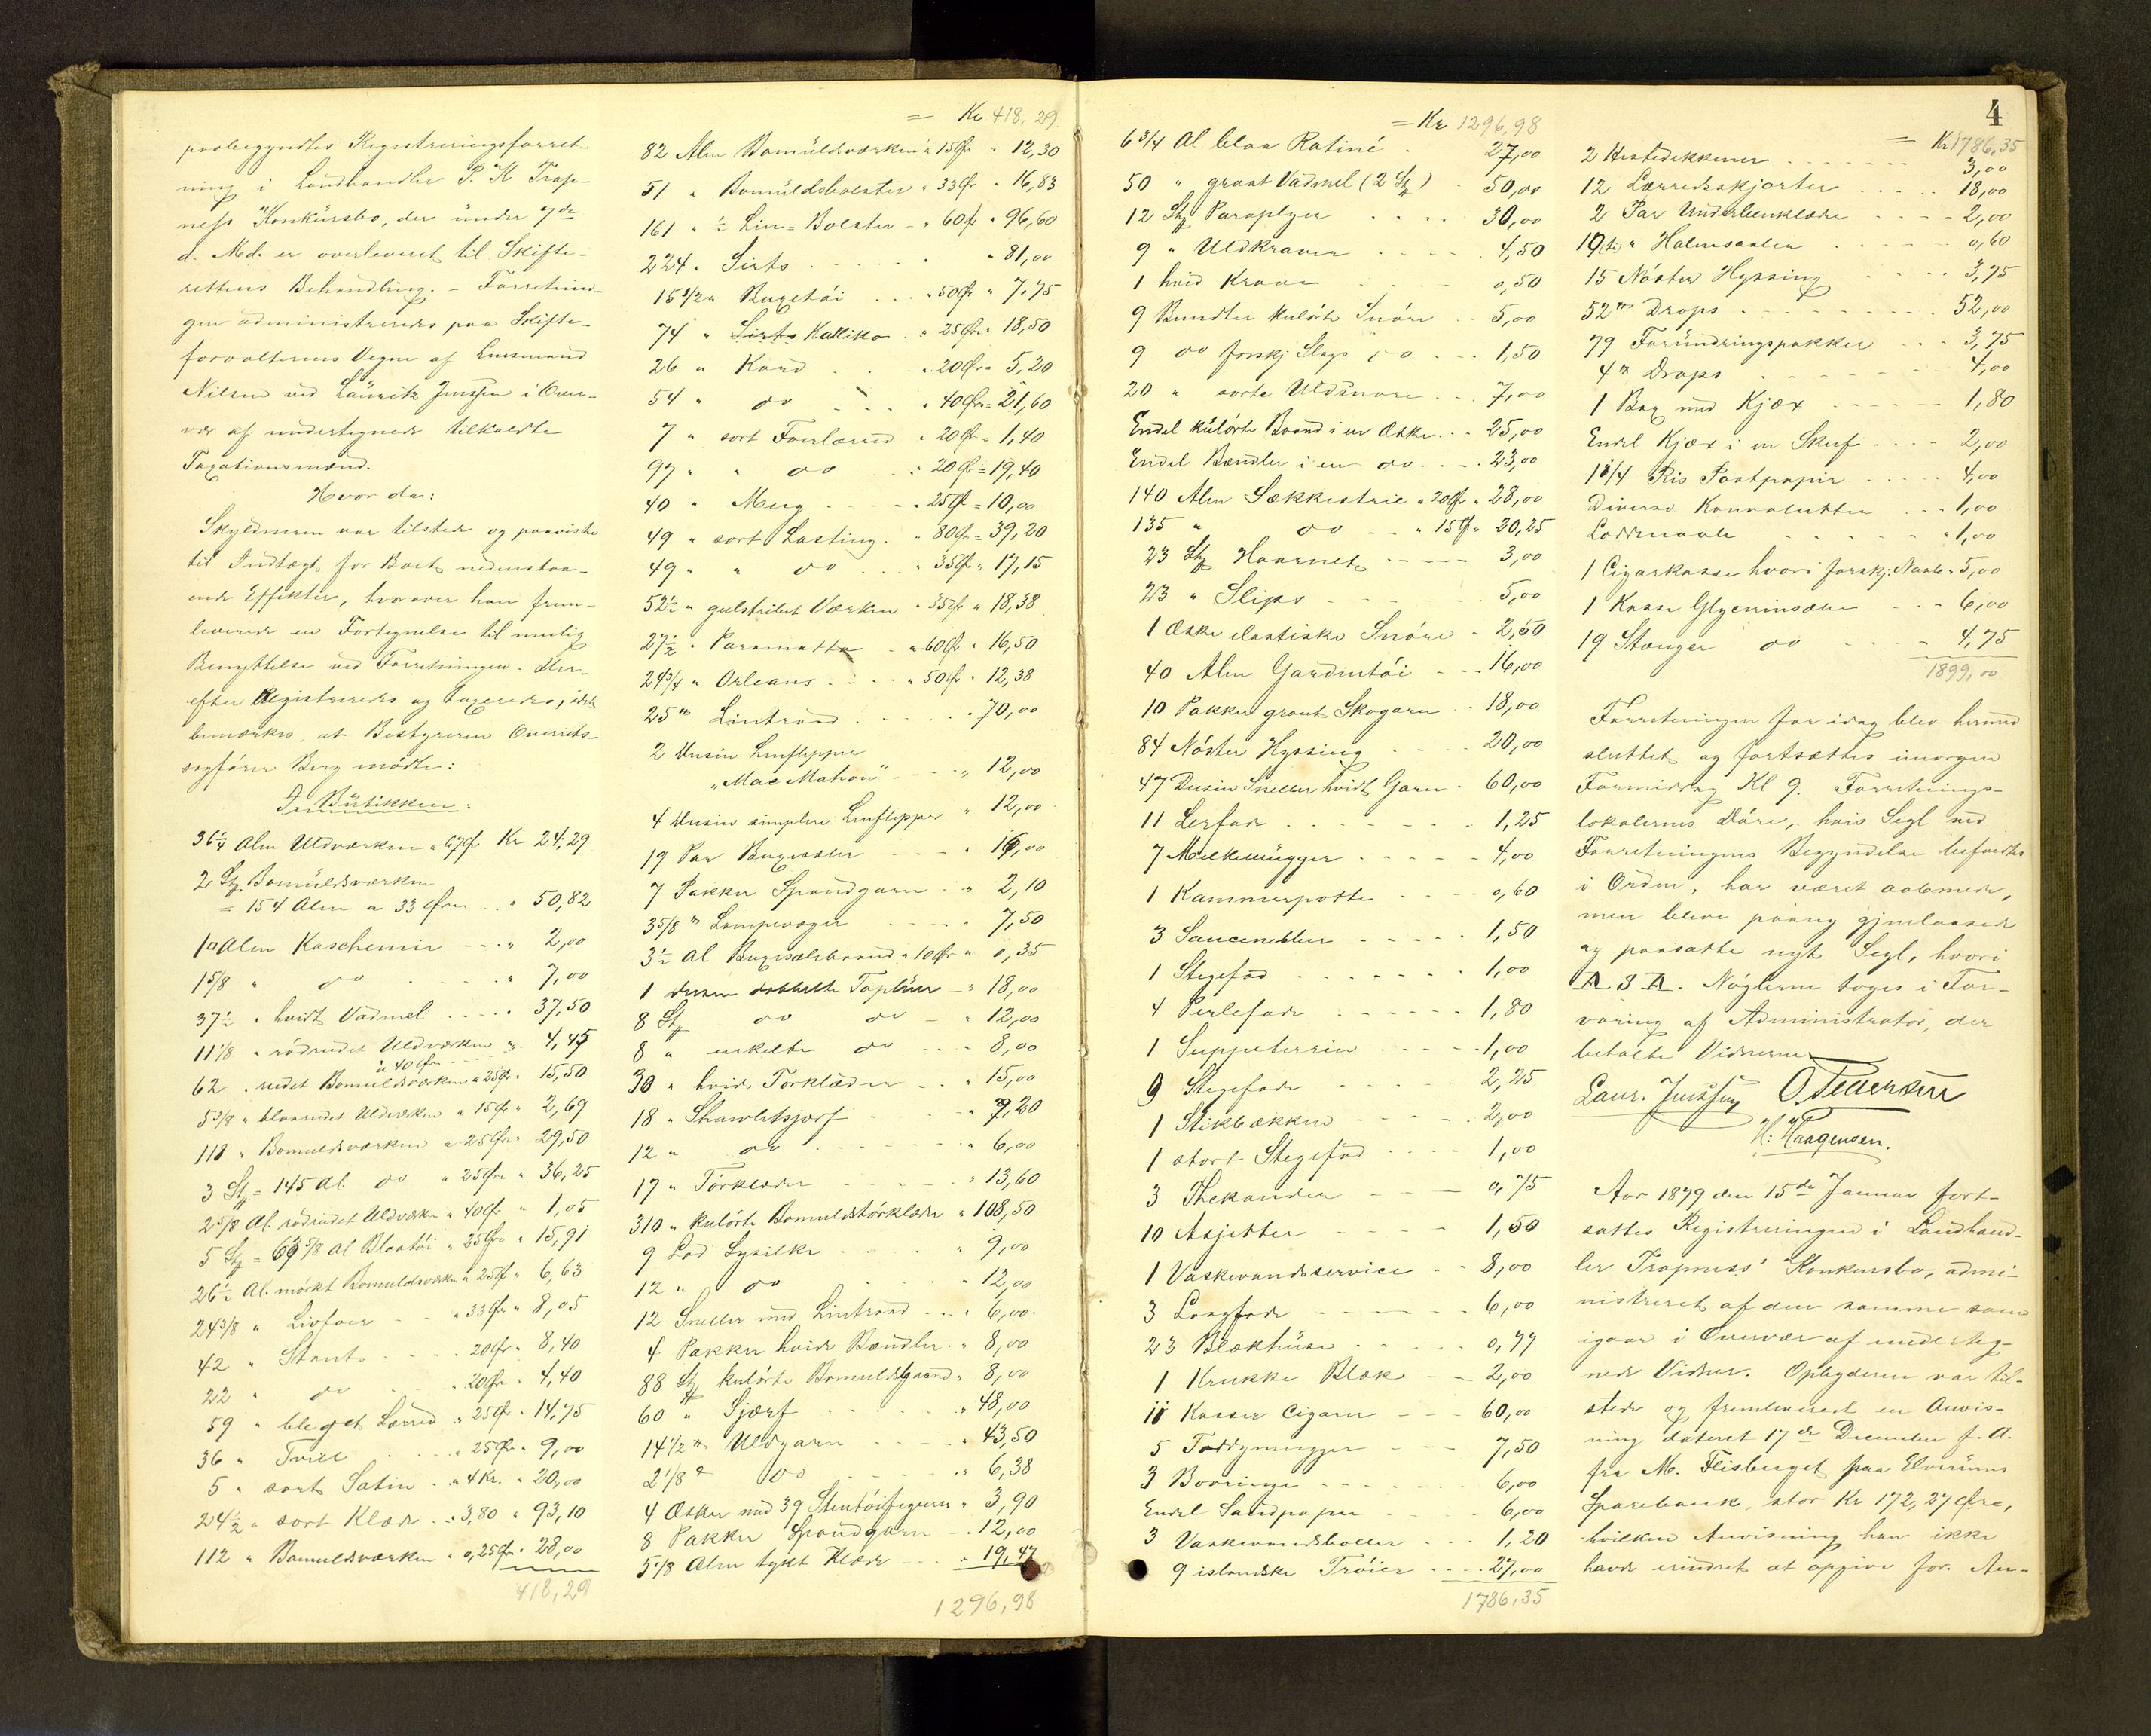 paabegyndtes Registreringsforret-
ning i Landhandler P. K Trap-
ness Konkursbo, der under 7de
d. Md. er overleveret til Skifte-
rettens Behandling. - Forretnin-
gen administreredes paa Skifte-
forvalterens Vegne af Lensmand
Nilsen ved Lauritz Jenssen i Over-
vær af undertegnede tilkaldte
Taxationsmænd.
Hvor da:
Skyldneren var tilstede og paaviste
til Indtægt for Boet nedenstaa-
ende Effekter, hvorover han frem-
leverede en Fortegnelse til mulig
Benyttelse ved Forretningen. Der-
efter Registreredes og taxeredes, idet
bemærkes, at Bestyreren Overrets-
sagfører Berg mødte:
I Butikken:
36¼ Alen Uldværken a 67 Øre Kr 24,29
2 Stk. Bomuldsværken
= 154 Alen a 33 Øre " 50,82
10 Alen Kaschemir " 2,00
15/8 " do " 7,00
37½ " hvidt Vadmel " 37,50
11 1/8 " rødrudet Uldværken a 40 Øre " 4,45
62 " rudet Bomuldsværken a 25 Øre " 15,50
5 3/8 " blaarudet Uldværken a 15 Øre " 2,69
118 " Bomuldsværken a 25 Øre " 29,50
3 Stk = 145 Al. do a 25 Øre " 36,25
2 5/8 Al. rødrudet Uldværken a 40 Øre " 1,05
5 Stk = 63 5/8 Al Blaatøi a 25 Øre " 15,91
26½ Al. mørkt Bomuldsværken a 25 Øre " 6,63
24 3/8 " Livfoer " 33 Øre " 8,05
42 " Stouts 20 Øre " 8,40
22 " do " 20 Øre " 4,40
59 " bleget Lærred " 25 Øre " 14,75
36 " Tvill " 25 Øre " 9,00
5 " sort Satin " 4 Kr. " 20,00
24½ " sort Klæde " 3,80 " 93,10
112 " Bomuldsværken " 0,25 Øre " 28,00
418,29
= Kr 418,29
82 Alen Bomuldsværken a 15 Øre " 12,30
51 " Bomuldsbolster " 33 Øre " 16,83
161 " ½ Lin-Bolster " 60 Øre " 96,60
224 " Sirts " 81,00
15½ " Buxetøi " 50 Øre " 7,75
74 " Sirts Kalliko " 25 Øre " 18,50
26 " Kord " 20 Øre " 5,20
54 " do " 40 Øre = 21,60
7 " sort Foerlærred " 20 Øre = 1,40
97 " " do " 20 Øre = 19,40
40 " Moug " 25 Øre = 10,00
49 " sort Lasting " 80 Øre = 39,20
49 " " do " 35 Øre " 17,15
52½ " gulstribet Værken " 35 Øre " 18,38
27½ " Paramatta " 60 Øre " 16,50
24¾ " Orleans " 50 Øre " 12,38
25 " Lintraad " 70,00
2 Dusin Linflipper
"Mac Mahon" " 12,00
4 Dusin simplere Linflipper " 12,00
19 Par Buxeseler " 16,00
7 Pakker Spandgarn " 2,10
35/8 " Lampevæger " 7,50
3½ Al Buxeselebaand " 10 Øre " 0,35
1 dusin dobbelte Toplüer " 18,00
8 Stk do do " 12,00
8 " enkelte do " 8,00
30 " hvide Tørklæder " 15,00
18 " Shawletsjerf " 7,20
12 " do " 6,00
17 " Tørklæder " 13,60
310 " kulørte Bomuldstørklæder " 108,50
9 Lod Sysilke " 9,00
12 " do " 12,00
12 Sneller med Lintraad " 6,00
4 Pakker hvide Bændler " 8,00
88 Stk kulørte Bomuldsbaand " 8,00
60 " Sjærf " 48,00
14½ " Uldgarn " 43,50
2 1/8 " do " 6,38
4 Æsker med 39 Stentøifigurer " 3,90
8 Pakker Spandgarn 12,00
5 1/8 Alen tykt Klæde " 19,47
1296,98
= Kr 1296,98
6¾ Al blaa Ratiné 27,00
50 " graat Vadmel (2 Stk) 50,00
12 Stk Paraplyer 30,00
9 " Uldkraver 4,50
1 hvid Krave 0,50
9 Bundter kulørte Snøre 5,00
9 do forskj Slags do 1,50
20 " sorte Uldsnore 7,00
Endel kulørte Baand i en Æske 25,00
Endel Bændler i en do 23,00
140 Alen Sækkestrie a 20 Øre " 28,00
135 " do " 15 Øre " 20,25
23 Stk Haarnet 3,00
23 " Slips 5,00
1 Æske elastiske Snøre 2,50
40 Alen Gardintøi 16,00
10 Pakker graat Skogarn 18,00
84 Nøster Hyssing 20,00
47 Dusin Sneller hvidt Garn 60,00
11 Lerfade 1,25
7 Melkemugger 4,00
1 Kammerpotte 0,60
3 Saucenebber 1,50
1 Stegefad 1,00
4 Perlefade 1,80
1 Suppeterrin 1,00
9 Stegefade 2,25
1 Stikbækken 2,00
1 stort Stegefad 1,00
3 Thekander 0,75
10 Asjetter 1,50
1 Vaskevandsservice 8,00
3 Langfade 6,00
23 Blækhuse 0,77
1 Krukke Blæk 2,00
11 Kasser Cigarer 60,00
5 Toddymugger 7,50
3 Børringe 6,00
Endel Sandpapir 6,00
3 Vaskevandsboller 1,20
9 islandske Trøier 27,00
1786,35
4
= Kr 1786,35
2 Hestedækkener 3,00
12 Lærredsskjorter 18,00
2 Par Underbenklæder 2,00
19 " Halmsaaler 0,60
15 Nøster Hyssing 3,75
52 " Drops 52,00
79 Forundringspakker 3,75
4 " Drops 4,00
1 Box med Kjæx 1,80
Endel Kjæx i en Skuf 2,00
1¾ Ris Postpapir 4,00
Diverse Konvolutter 1,00
Loddenaale 1,00
1 Cigarkasse hvori forskj: Naale 5,00
1 Kasse Glycerinsæbe 6,00
19 Stænger do 4,75
1899,00
Forretningen for idag blev hermed
sluttet og fortsættes imorgen
Formiddag Kl 9. Forretnings-
lokalernes Døre, hvis Segl ved
Forretningens Begyndelse befandtes
i Orden, har været aabnede,
men bleve paany gjenlaasede
og paasatte nyt Segl, hvori
A S A. Nøglerne toges i For-
varing af Administrator, der
betalte Vidnerne.
Laur. Jenssen O Pedersen
H: Haagensen.
Aar 1879 den 15de Januar fort-
sattes Registreringen i Landhand-
ler Trapness' Konkursbo, admi-
nistreret af den samme som
igaar i Overvær af underteg-
nede Vidner. Opbyderen var til-
stede og fremleverede en Anvis-
ning dateret 17de December f. A.
fra M. Flisberget paa Elverums
Sparebank, stor Kr 172,27 Øre,
hvilken Anvisning han ikke
havde erindret at opgive før. An-